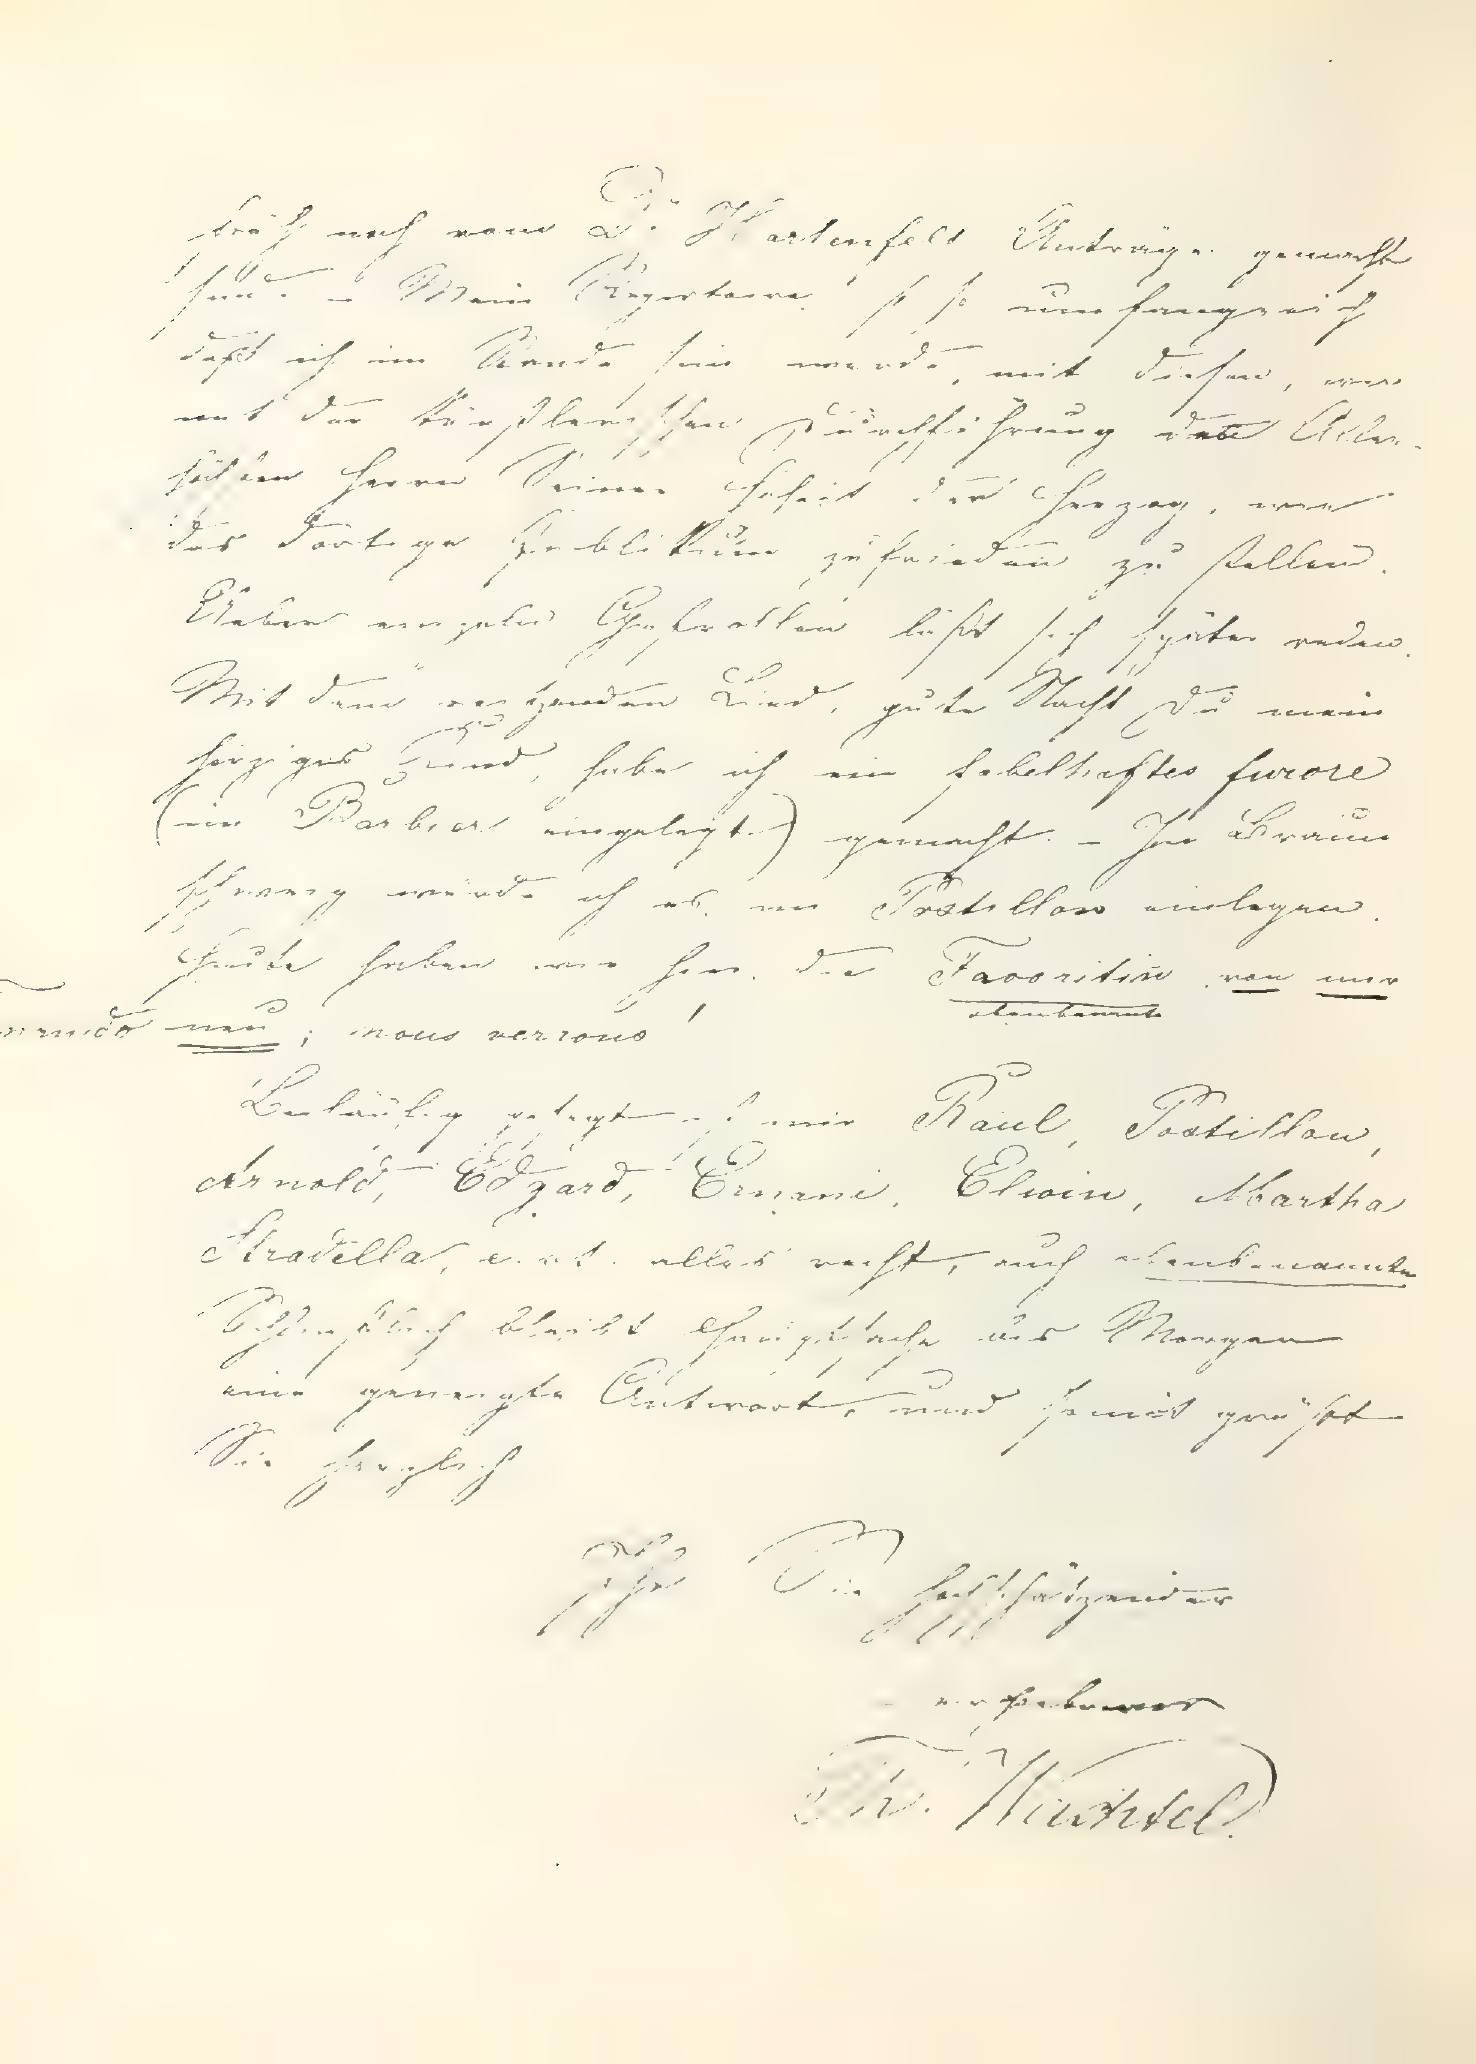 noch vom Dr. Hartenfels Anträge gemacht
sind. – Mein Repertoire ist so umfangreich
daß ich im Stande sein werde, mit diesem, wie
mit der künstlerischen Durchführung den Aller-
höchsten Herrn Seiner Hoheit der Herzog, wie
das dortige Publikum zufrieden zu stellen.
Ueber einzelne Gastrollen läßt sich später reden.
Mit dem reizenden Lied, gute Nacht Du mein
herziges Kind, habe ich ein fabelhaftes furore
(im Barbier eingelegt) gemacht. – In Braun
schweig würde ich es im Postillon einlegen.
Heute haben wir hier die Favoritin von mir
ebenbenannte
neu; nous verrons!
Beiläufig gesagt ist mir Raul, Postillon,
Arnold, Edgard, Ernani, Elwin, Martha
Stradella, e.ct. alles recht, auch ebenbenannte
bleibt Hauptsache bis Morgen
eine geneigte Antwort, und somit grüßt
Sie herzlich
Ihr Sie hochschätzender
ergebener
Th. Wachtel